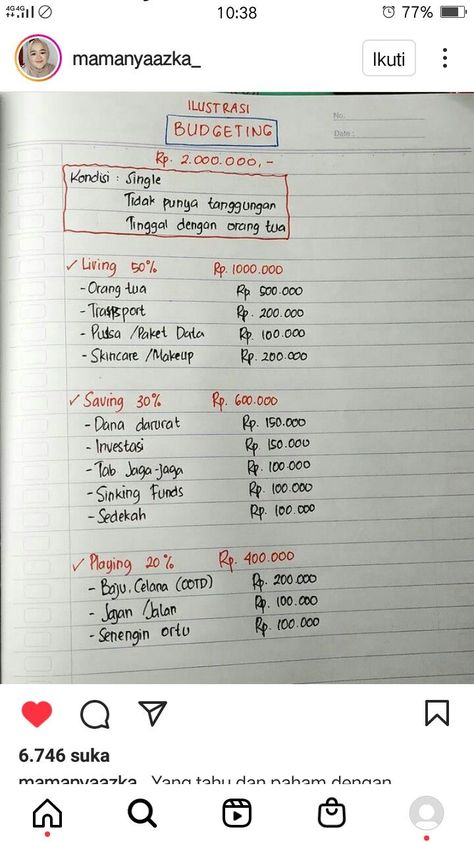 4G 4G
10:38
77%
mamanyaazka_
Ikuti
ILUSTRASI
BUDGETING
No.
Date :
Rp. 2.000.000,-
Kondisi : Single
Tidak punya tanggungan
Tinggal dengan orang tua
✓ Living 50% Rp. 1000.000
- Orang tua Rp 500.000
- Transport Rp. 200.000
- Pulsa /Paket Data Rp. 100.000
- Skincare /Makeup Rp. 200.000
✓ Saving 30% Rp. 600.000
- Dana darurat Rp. 150.000
- Investasi Rp 150.000
- Tab Jaga-jaga Rp. 100.000
- Sinking Funds Rp. 100.000
- Sedekah Rp. 100.000
✓ Playing 20% Rp. 400.000
- Baju, Celana (OOTD) Rp. 200.000
- Jajan /Jalan Rp. 100.000
- Senengin ortu Rp. 100.000
6.746 suka
mamanyaazka_ Yang tahu dan paham dengan